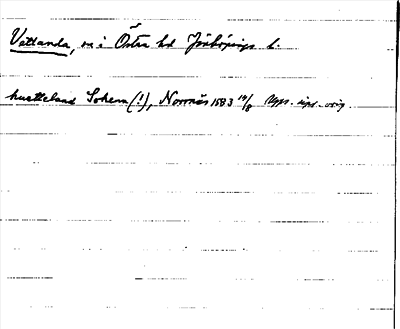 Vetlanda, sn i Östra hd Jönköpings l.
huetteland Sokenn (!), Norrnäs 1583 14/8 Upps. upr. orig.